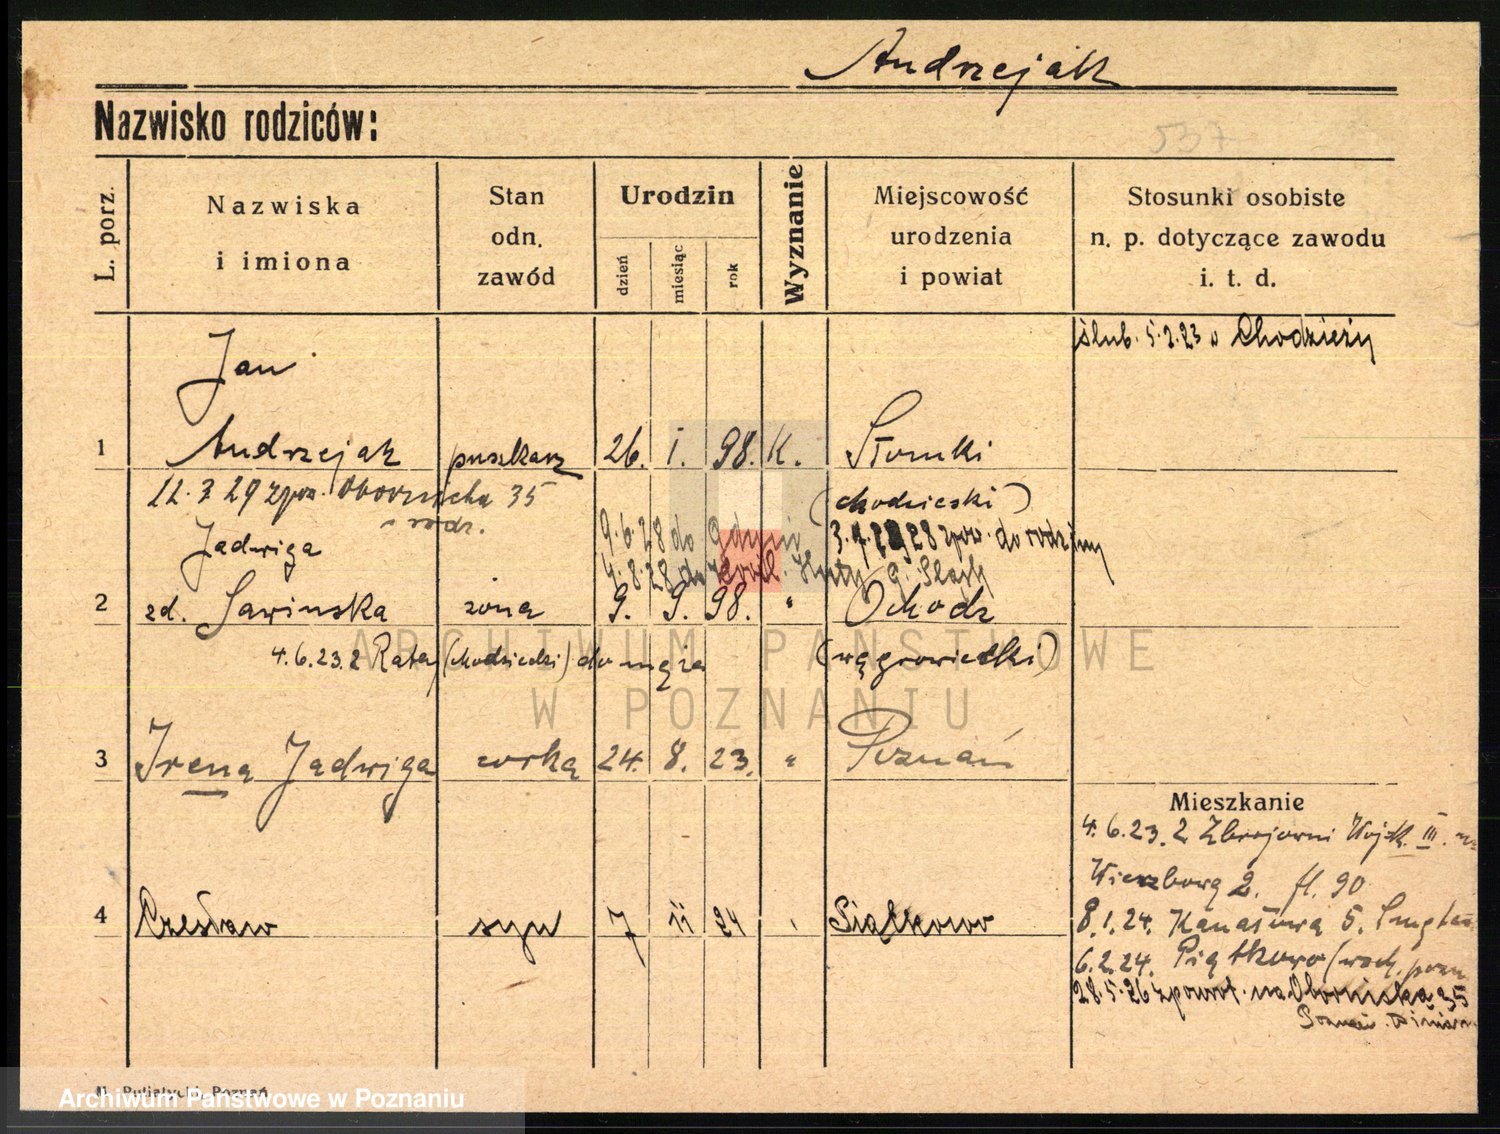 Andrzejak
Nazwisko rodziców:
537
L. porz.
Nazwiska
i imiona
Stan
odn.
zawód
Urodzin
dzień
miesiąc
rok
Wyznanie
Miejscowość
urodzenia
i powiat
Stosunki osobiste
n. p. dotyczące zawodu
i. t. d.
ślub. 5.2.23 w Chodzieży
Jan
1 Andrzejak puszkarz 26. I. 98. K. Słomki
(chodzieski)
12.7 29 zpow. Obornicka 35
z rodz.
9.6.28 do Gdyni 28 zpow. do rodziny
4.8.28 do Król. Huty G. Śląsk
Jadwiga
2 zd. Sawinska żona 9. 9. 98. " Ochodz
4.6.23. z Rataj (chodzieski) do męża (wągrowiecki)
ARCHIWUM PAŃSTWOWE
W POZNANIU
3 Irena Jadwiga córka 24. 8. 23. " Poznań
Mieszkanie
4.6.23. z Zbrojowni Wojsk. III.
Wierzbową 2. fl. 90
4 Czesław syn 7 11 24 " Siątkowo
8.1.24. Kanałową 5.
6.2.24. Piątkowo (wsch. pozn
28.5.26 zpowrot. na Obornicką 35
Poznań. Winiary
Putiatycki, Poznań
Archiwum Państwowe w Poznaniu